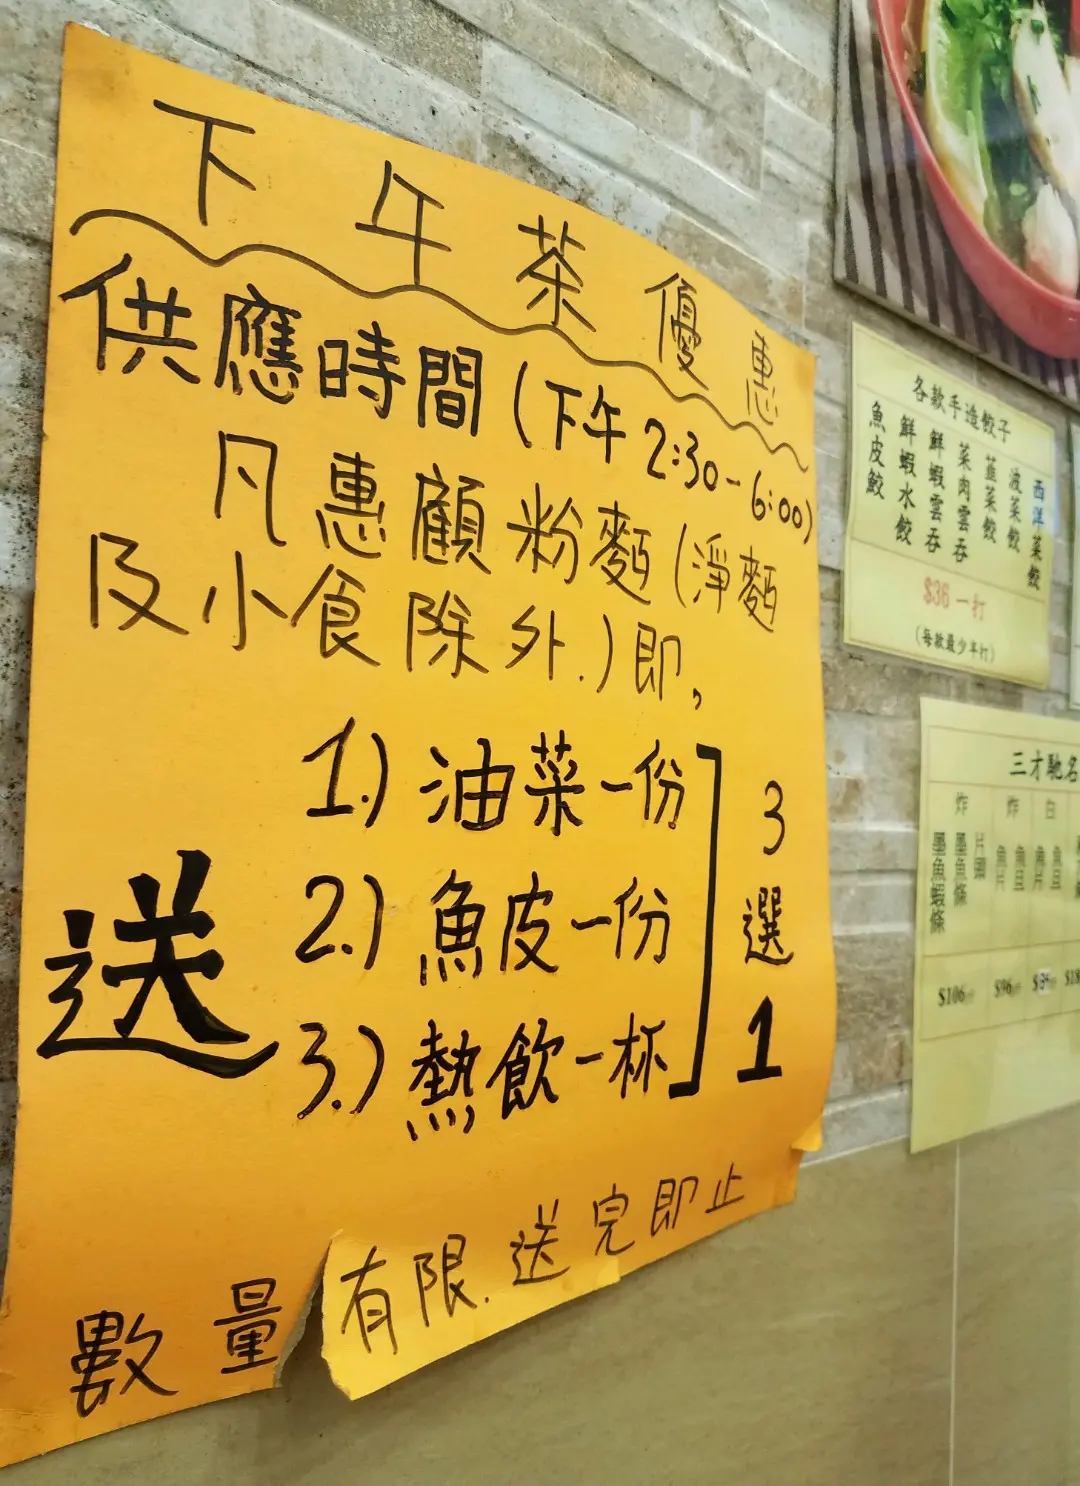 下午茶優惠
供應時間(下午2:30-6:00)
凡惠顧粉麵(淨麵
及小食除外.)即,
送
1.) 油菜一份
2.) 魚皮一份
3.) 熱飲一杯
3選1
數量有限.送完即止
各款手造餃子
西洋菜餃
波菜餃
韮菜餃
菜肉雲吞
鮮蝦雲吞
鮮蝦水餃
魚皮餃
$36一打
(每款最少半打)
三才馳名
炸 炸 白
墨魚蝦條
墨魚條
魚片
魚旦
魚片
魚旦
$106 $96